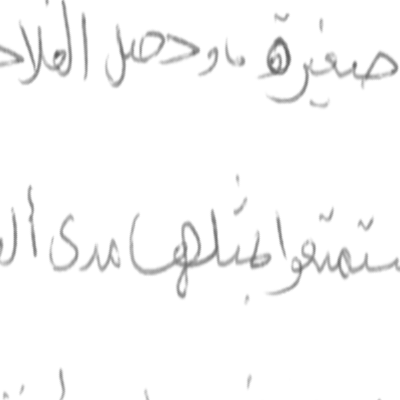 صغيرة ما وحصل الفلا
ستمتعوا بمثلها مدى ال